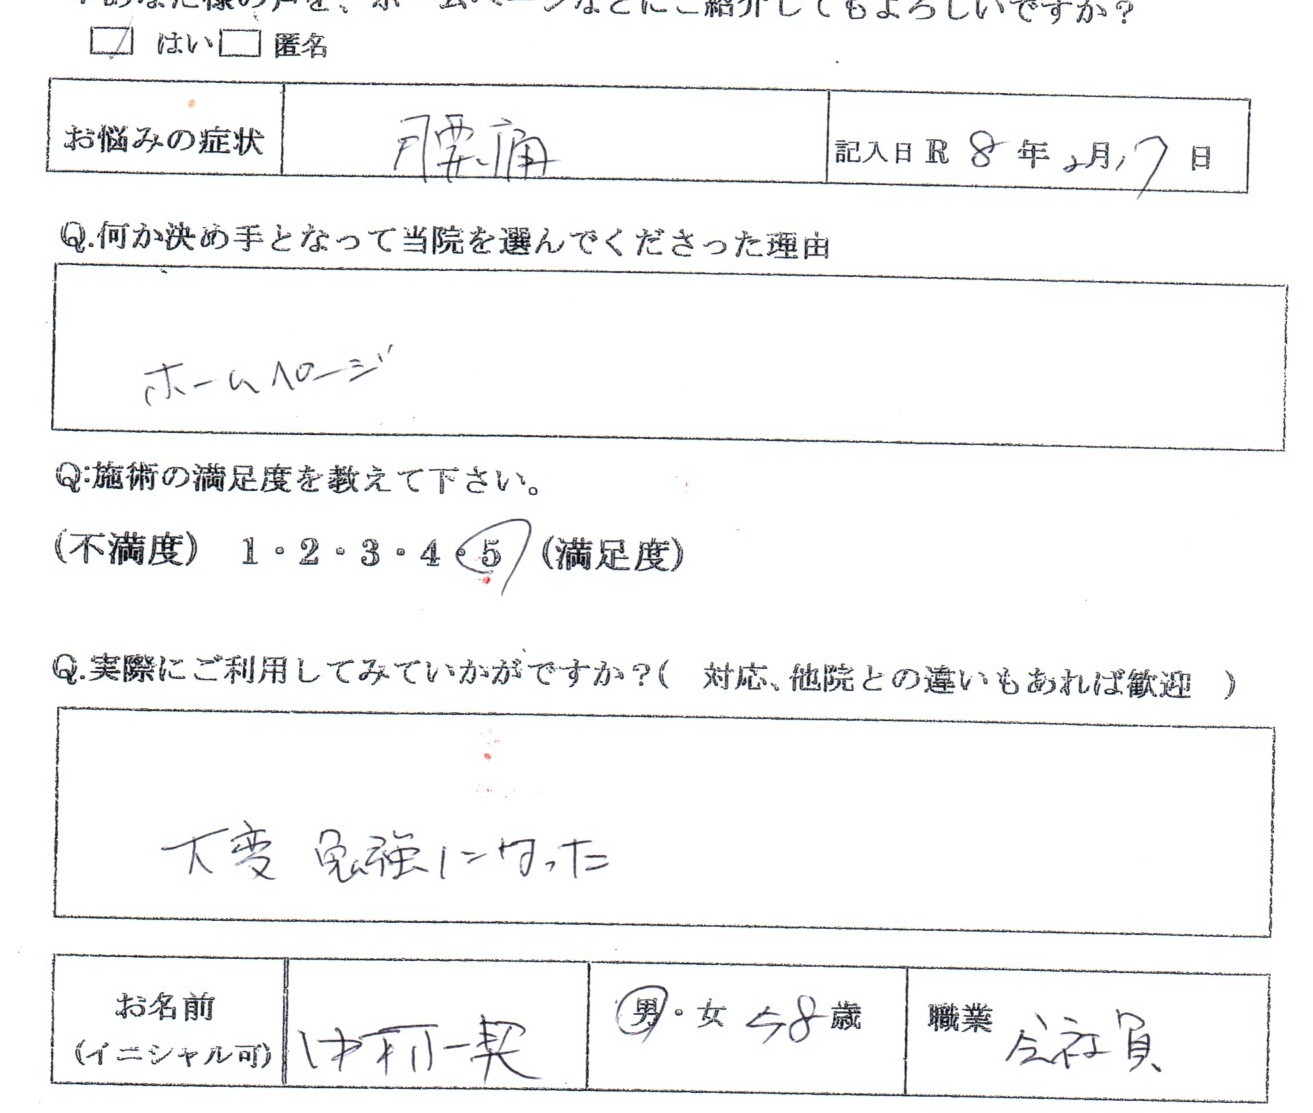 あなた様の声を、ホームページなどにご紹介してもよろしいですか？
はい 匿名
お悩みの症状 腰痛 記入日 R 8 年 2月 17 日
Q.何か決め手となって当院を選んでくださった理由
ホームページ
Q:施術の満足度を教えて下さい。
(不満度) 1・2・3・4・5 (満足度)
Q.実際にご利用してみていかがですか？( 対応、他院との違いもあれば歓迎 )
大変 勉強になった
お名前
(イニシャル可) 中村
男・女 58歳 職業 会社員